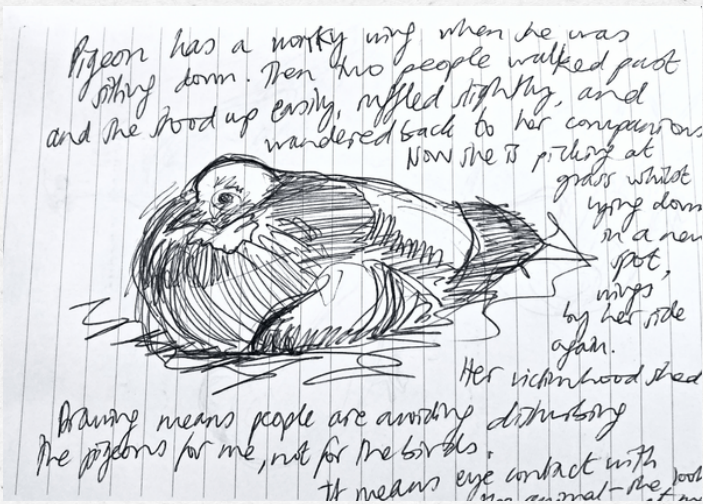 Pigeon has a wonky wing when she was
sitting down. Then two people walked past
and she stood up easily, ruffled slightly, and
wandered back to her companions
Now she is picking at
grass whilst
lying down
in a new
spot,
wings
by her side
again.
Her victimhood shed
Drawing means people are avoiding disturbing
the pigeons for me, not for the birds.
It means eye contact with
animal - the look